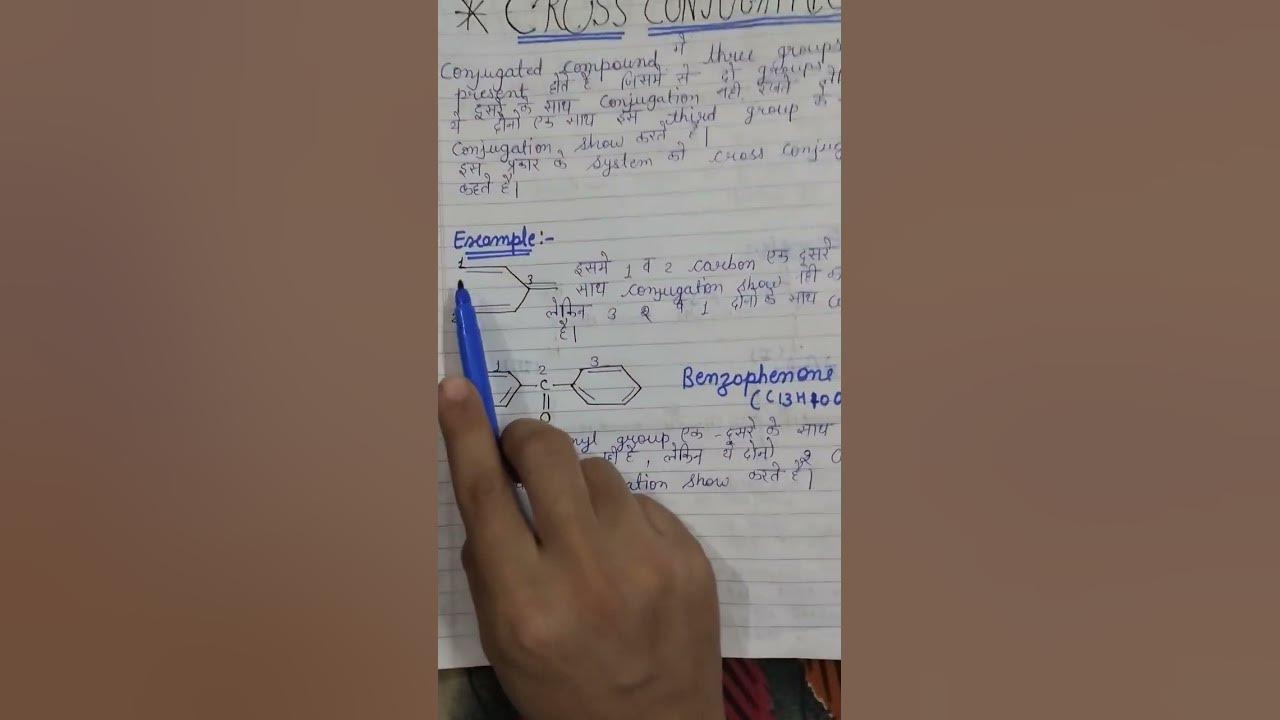 * CROSS CONJUGATI
Conjugated compound में three groups
present होते है जिसमे से दो groups
इसरे के साथ conjugation नही रखते
ये दोनो एक साथ इस third group के
conjugation show करते है।
इस प्रकार के system को cross conjug
कहते है।
Example:-
1
3
इसमे 1 व 2 carbon एक दूसरे
साथ conjugation show नही क
लेकिन 3 2 व 1 दोनो के साथ
है।
1 2 3
C
O
Benzophenone
(C13H10O
nyl group एक-दूसरे के साथ
ही है, लेकिन ये दोनो 2
ation show करते है।